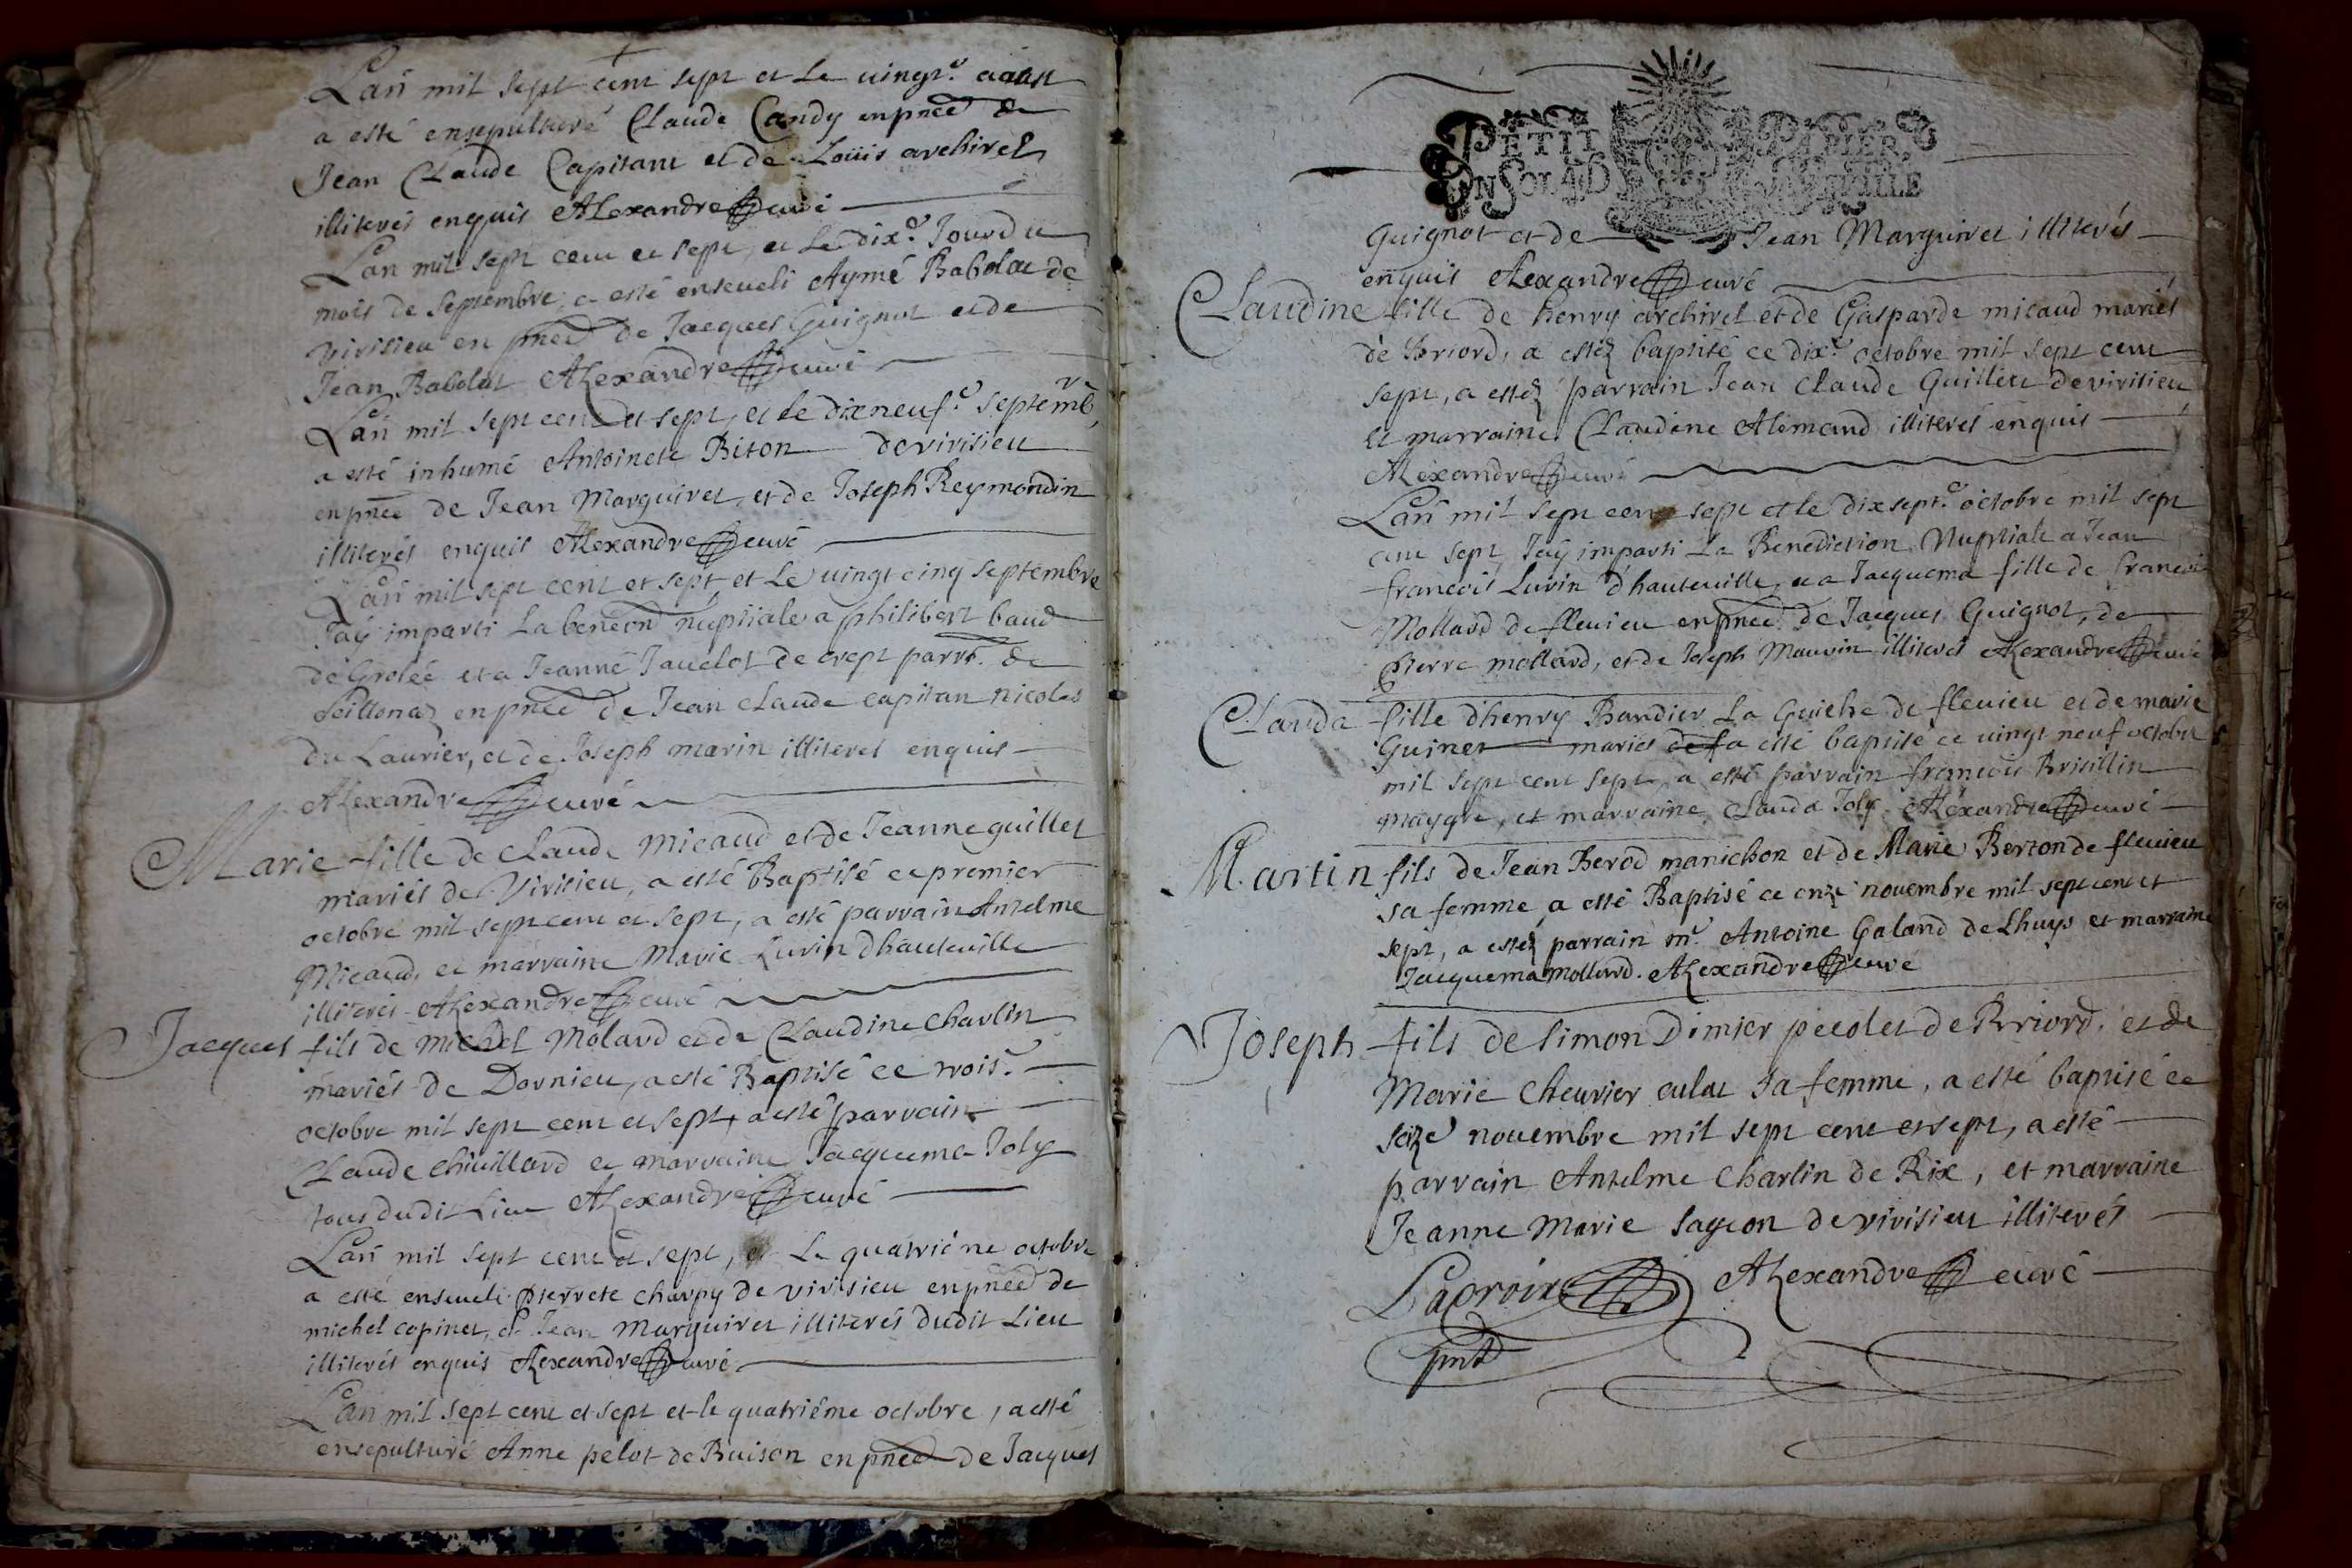 Lan mil sept cent sept et le vingt.e aoust
a esté ensepulturé Claude Candy enpnce de
Jean Claude Capitant et de Loüis archirel
illiterés enquis Alexandre curé
Lan mil sept cent et sept, et le dix.e Jour du
mois de septembre, a esté enseueli Aymé Babolat de
virisieu en pnce de Jacques Guignot et de
Jean Babolat Alexandre curé
Lan mil sept cent et sept, et le dixneuf.e septemb.re
a esté inhumé Antoinete Biton de virisieu
enpnce de Jean Marguiret, et de Joseph Reymondin
illiterés enquis Alexandre curé
Lan mil sept cent et sept et le vingt cinq septembre
Jay imparti la beneon nuptiale a philibert baud
de Grolée et a Jeanne Jauelot de crept parr. de
seillonaz enpnce de Jean claude capitan nicolas
du Laurier, et de Joseph marin illiteres enquis
Alexandre curé
Marie fille de claude Micaud et de Jeanne guillet
mariés de Virisieu, a esté Baptisé ce premier
octobre mil sept cent et sept, a esté parrain Antelme
Micaud, et marraine Marie Luvin dhauteuille
illiterés Alexandre curé
Jacques fils de Michel Molard et de Claudine Charlin
mariés de Dornieu, a esté Baptisé ce trois.e
octobre mil sept cent et sept, a esté parrain
Claude chiuillard et marraine Jacquema Joly
tous dudit Lieu Alexandre curé
Lan mil sept cent et sept, et Le quatriéne octobre
a esté enseueli pierrete charpy de virisieu enpnce de
michel copinet, et Jean Marguiret illiterés dudit Lieu
illiterés enquis Alexandre curé
Lan mil sept cent et sept et le quatriéme octobre, a esté
ensepulturé Anne pelot de Buison enpnce de Jacques
PETIT PAPIER
UN SOL 4 D LA FEUILLE
Guignot et de Jean Marguiret illiterés
enquis Alexandre curé
Claudine fille de henry archirel et de Gasparde micaud mariés
de Briord, a estéz baptisé ce dix.e octobre mil sept cent
sept, a estéz parrain Jean claude Guillet de virisieu
et marraine Claudine Alemand illiterés enquis
Alexandre curé
Lan mil sept cent sept et le dix sept.e octobre mil sept
cent sept, Jay imparti La Benediction Nuptiale a Jean
francois Luvin d'hauteuille, et a Jacquema fille de francois
Mollard de fleuieu enpnce de Jacques Guignot, de
Pierre mollard, et de Joseph Mauvin illiterés Alexandre curé
Clauda fille d'henry Bandier La Guiche de fleuieu et de marie
Guinet mariés de f a esté baptisé ce vingt neuf octobre
mil sept cent sept a esté parrain francois Brisillin
maygre, et marraine Clauda Joly Alexandre curé
Martin fils de Jean Berod manichon et de Marie Berton de fleuieu
sa femme a esté Baptisé ce onze novembre mil sept cent et
sept, a estéz parrain m.e Antoine Galand de Lhuys et marraine
Jacquema Mollard. Alexandre curé
Joseph fils de Simon Dimier pecolet de Briord, et de
Marie cheurier culat sa femme, a esté baptisé ce
seize nouembre mil sept cent et sept, a esté
parrain Antelme Charlin de Rix, et marraine
Jeanne Marie sageon de virisieu illiterés
Lacroix Alexandre curé
pnt